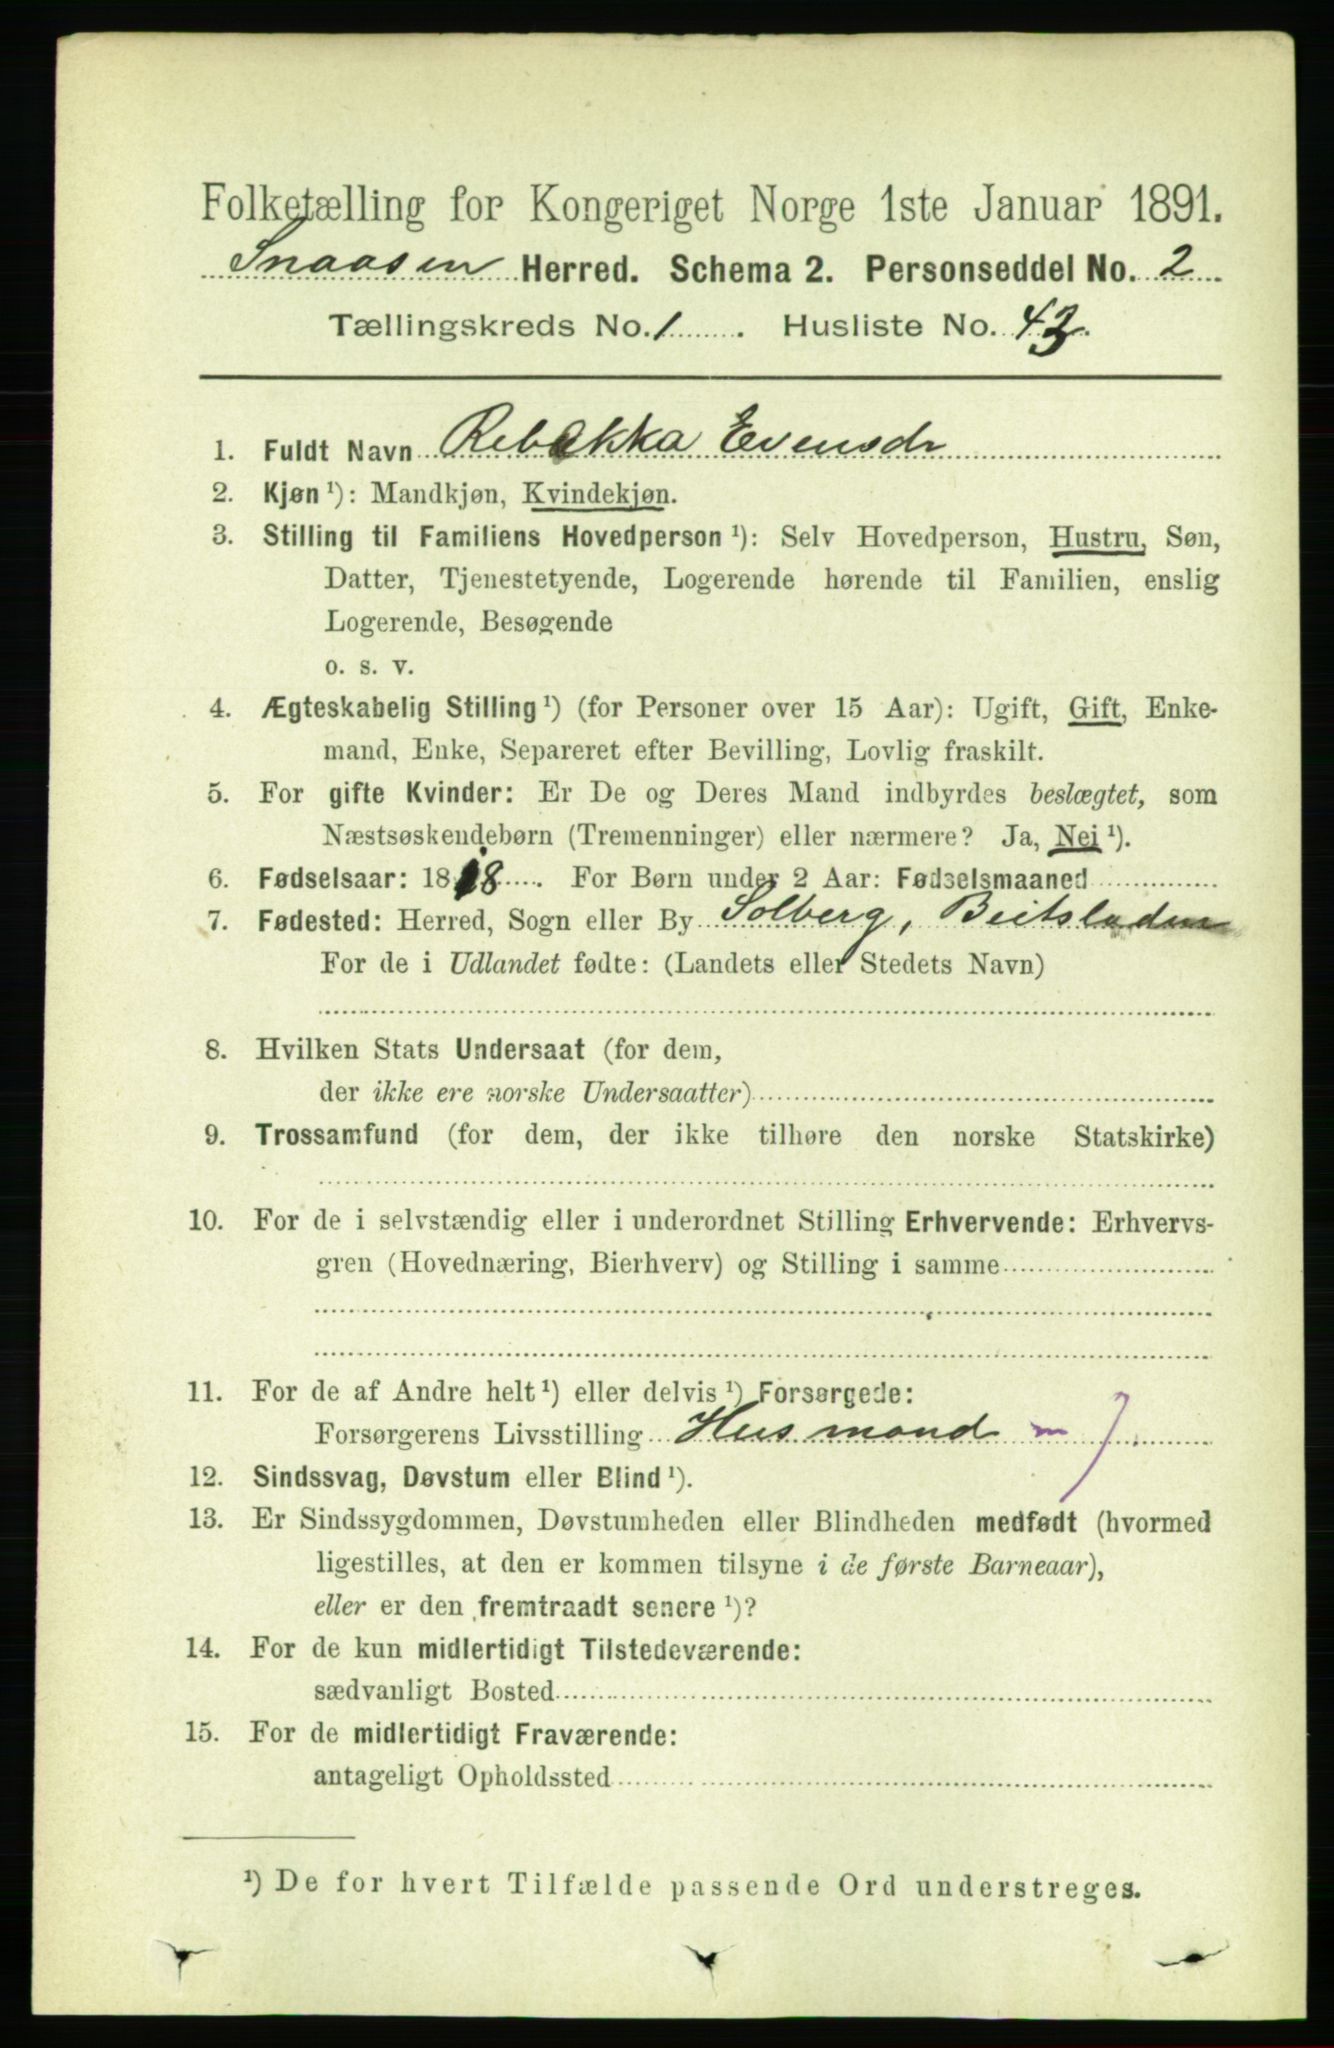 Folketælling for Kongeriget Norge 1ste Januar 1891.
Snaasen Herred. Schema 2. Personseddel No. 2
Tællingskreds No. 1. Husliste No. 43.
1. Fuldt Navn Rebekka Evensdr
2. Kjøn ¹): Mandkjøn, Kvindekjøn.
3. Stilling til Familiens Hovedperson ¹): Selv Hovedperson, Hustru, Søn,
Datter, Tjenestetyende, Logerende hørende til Familien, enslig
Logerende, Besøgende
o. s. v.
4. Ægteskabelig Stilling ¹) (for Personer over 15 Aar): Ugift, Gift, Enke-
mand, Enke, Separeret efter Bevilling, Lovlig fraskilt.
5. For gifte Kvinder: Er De og Deres Mand indbyrdes beslægtet, som
Næstsøskendebørn (Tremenninger) eller nærmere? Ja, Nei ¹).
6. Fødselsaar: 1818. For Børn under 2 Aar: Fødselsmaaned
7. Fødested: Herred, Sogn eller By Solberg, Beitsladen
For de i Udlandet fødte: (Landets eller Stedets Navn)
8. Hvilken Stats Undersaat (for dem,
der ikke ere norske Undersaatter)
9. Trossamfund (for dem, der ikke tilhøre den norske Statskirke)
10. For de i selvstændig eller i underordnet Stilling Erhvervende: Erhvervs-
gren (Hovednæring, Bierhverv) og Stilling i samme
11. For de af Andre helt ¹) eller delvis ¹) Forsørgede:
Forsørgerens Livsstilling Husmand m J.
12. Sindssvag, Døvstum eller Blind ¹).
13. Er Sindssygdommen, Døvstumheden eller Blindheden medfødt (hvormed
ligestilles, at den er kommen tilsyne i de første Barneaar),
eller er den fremtraadt senere ¹)?
14. For de kun midlertidigt Tilstedeværende:
sædvanligt Bosted
15. For de midlertidigt Fraværende:
antageligt Opholdssted
¹) De for hvert Tilfælde passende Ord understreges.